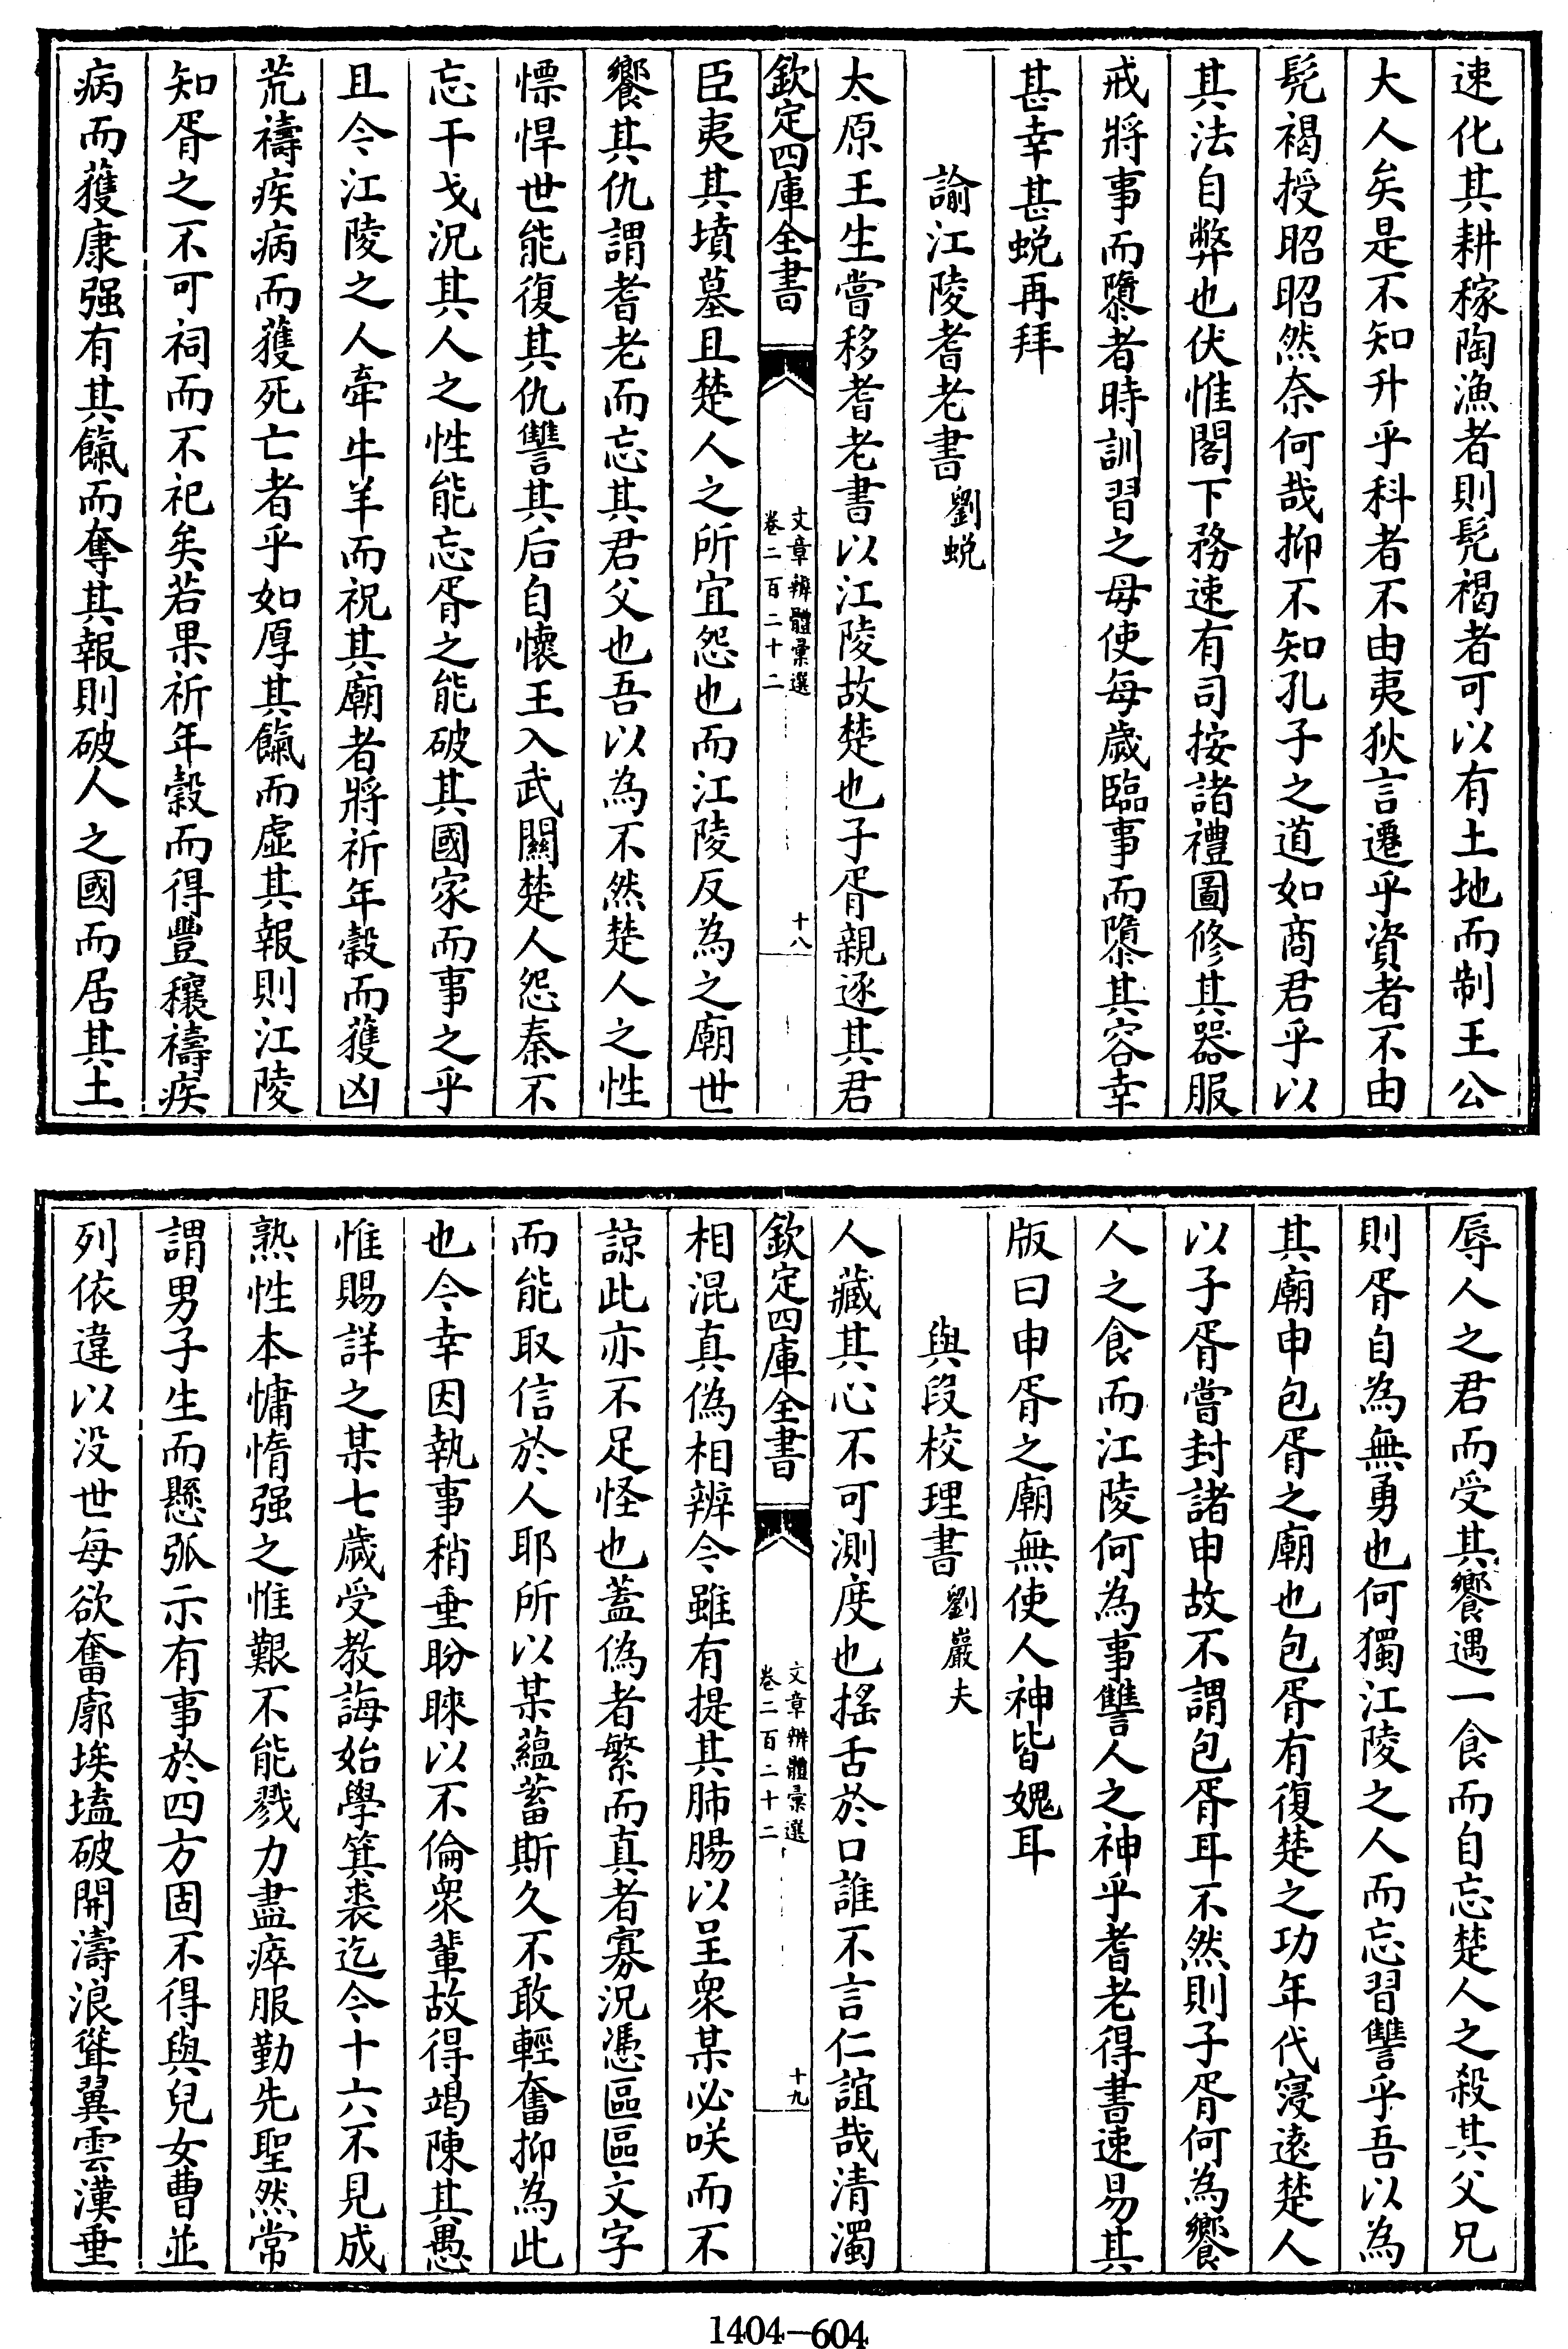 速化其耕稼陶漁者則髠褐者可以有土地而制王公
大人矣是不知升乎科者不由夷狄言遷乎資者不由
髠褐授昭昭然奈何哉抑不知孔子之道如商君乎以
其法自弊也伏惟閣下務速有司按諸禮圖修其器服
戒將事而隳者時訓習之毋使每歲臨事而隳其容幸
甚幸甚蛻再拜
諭江陵耆老書劉蛻
太原王生嘗移耆老書以江陵故楚也子胥親逐其君
欽定四庫全書
文章辨體彙選
卷二百二十二
十八
臣夷其墳墓且楚人之所宜怨也而江陵反為之廟世
饗其仇謂耆老而忘其君父也吾以為不然楚人之性
慓悍世能復其仇讐其后自懷王入武關楚人怨秦不
忘干戈況其人之性能忘胥之能破其國家而事之乎
且今江陵之人牽牛羊而祝其廟者將祈年穀而獲凶
荒禱疾病而獲死亡者乎如厚其餼而虛其報則江陵
知胥之不可祠而不祀矣若果祈年穀而得豐穰禱疾
病而獲康强有其餼而奪其報則破人之國而居其土
辱人之君而受其饗遇一食而自忘楚人之殺其父兄
則胥自為無勇也何獨江陵之人而忘習讐乎吾以為
其廟申包胥之廟也包胥有復楚之功年代寖遠楚人
以子胥嘗封諸申故不謂包胥耳不然則子胥何為饗
人之食而江陵何為事讐人之神乎耆老得書速易其
版曰申胥之廟無使人神皆媿耳
與段校理書劉巖夫
人藏其心不可測度也搖舌於口誰不言仁誼哉清濁
欽定四庫全書
文章辨體彙選
卷二百二十二
十九
相混真偽相辨今雖有提其肺腸以呈衆某必咲而不
諒此亦不足怪也蓋偽者繁而真者寡況憑區區文字
而能取信於人耶所以某蘊蓄斯久不敢輕奮抑為此
也今幸因執事稍垂盼睞以不倫衆輩故得竭陳其愚
惟賜詳之某七歲受教誨始學箕裘迄今十六不見成
熟性本慵惰强之惟艱不能戮力盡瘁服勤先聖然常
謂男子生而懸弧示有事於四方固不得與兒女曹並
列依違以没世每欲奮廓埃壒破開濤浪聳翼雲漢垂
1404—604